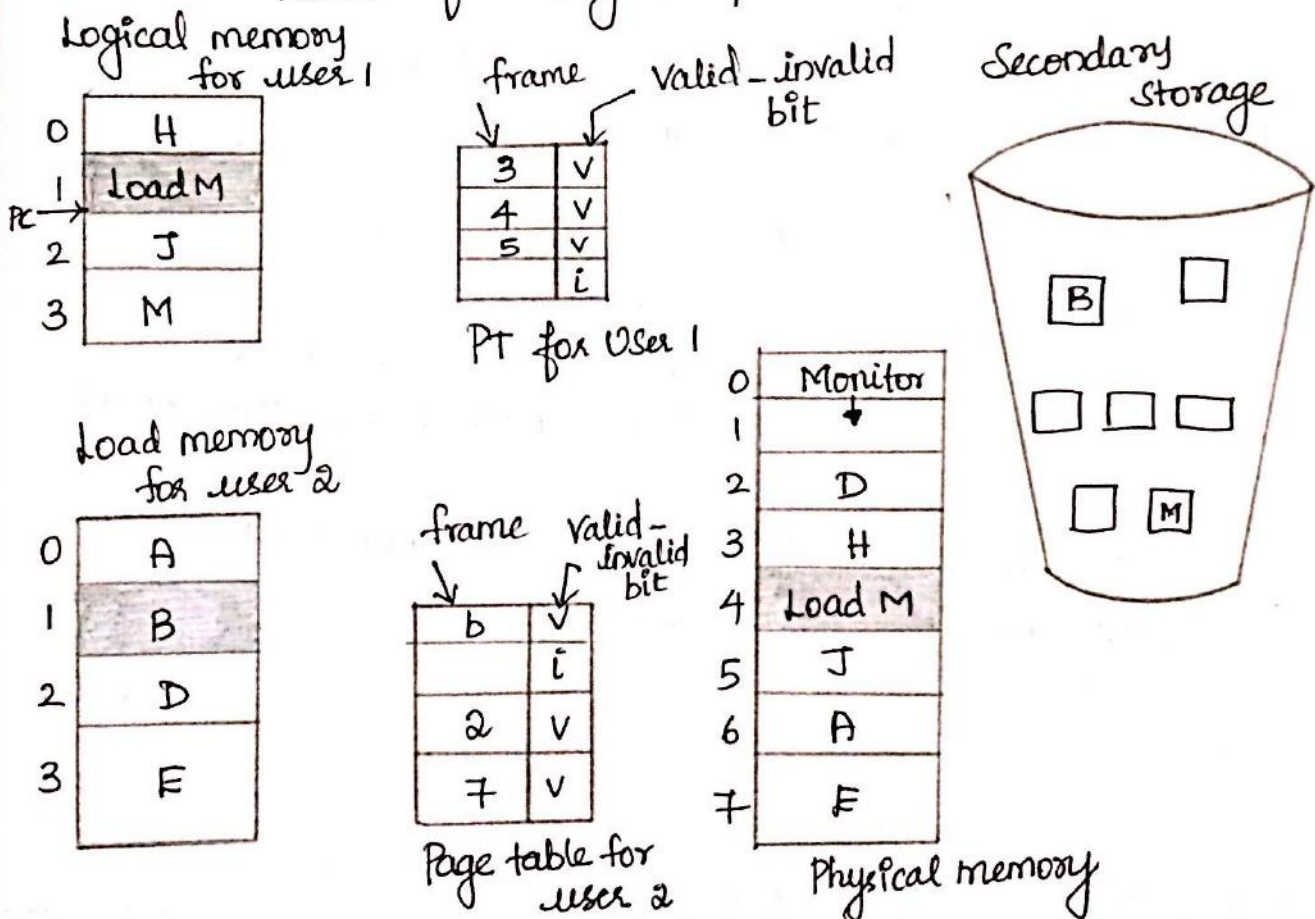 Logical memory
for user 1
0 H
1 Load M
PC
2 J
3 M
frame
valid-invalid
bit
3 v
4 v
5 v
i
PT for User 1
Secondary
storage
B
M
Load memory
for user 2
0 A
1 B
2 D
3 E
frame
valid-
invalid
bit
b v
i
2 v
7 v
Page table for
user 2
0 Monitor
1
2 D
3 H
4 Load M
5 J
6 A
7 E
Physical memory